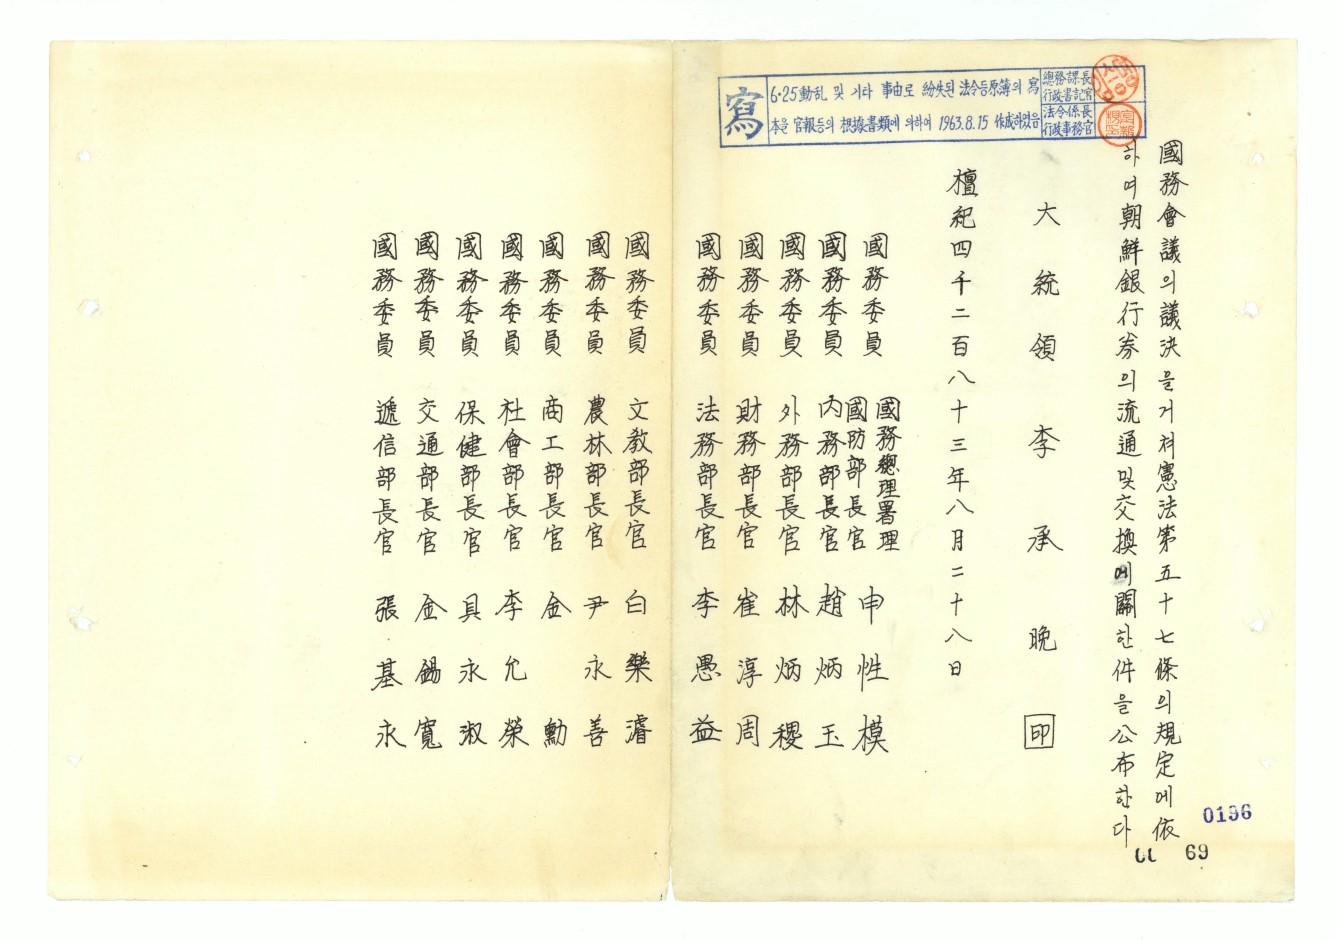 寫
6·25動乱 및 기타 事由로 紛失된 法令등原簿의 寫
本을 官報등의 根據書類에 의하여 1963.8.15 作成하였음
總務課長
行政書記官
法令係長
行政事務官
國務會議의議決을거쳐憲法第五十七條의規定에依
하여朝鮮銀行券의流通및交換에關한件을公布한다
大統領 李承晩 印
檀紀四千二百八十三年八月二十八日
國務總理署理
國務委員 國防部長官 申性模
國務委員 內務部長官 趙炳玉
國務委員 外務部長官 林炳稷
國務委員 財務部長官 崔淳周
國務委員 法務部長官 李愚益
國務委員 文敎部長官 白樂濬
國務委員 農林部長官 尹永善
國務委員 商工部長官 金勳
國務委員 社會部長官 李允榮
國務委員 保健部長官 具永淑
國務委員 交通部長官 金錫寬
國務委員 遞信部長官 張基永
0196
69